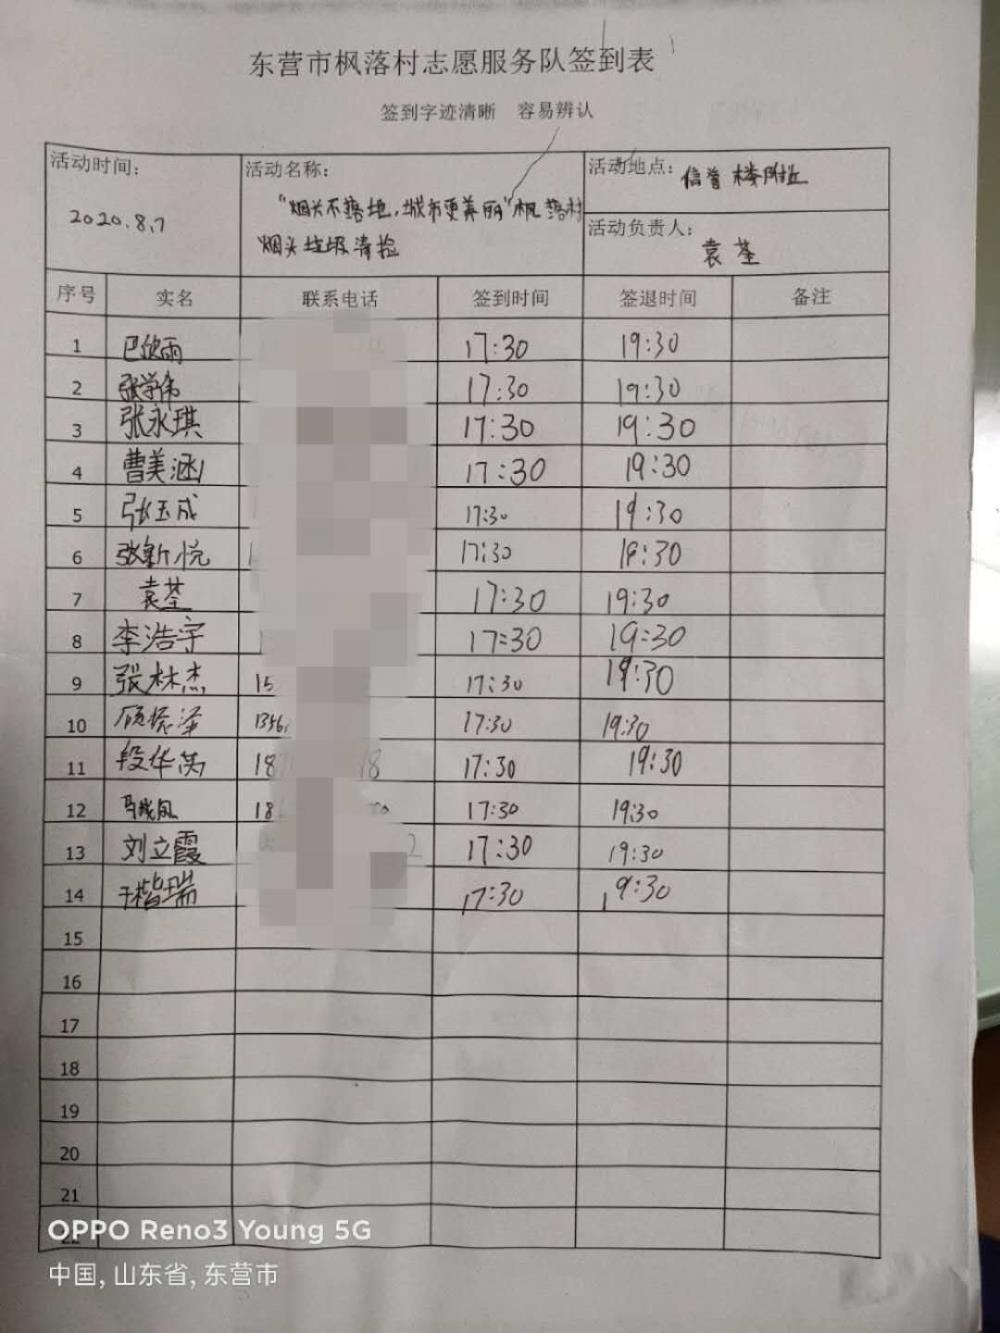 东营市枫落村志愿服务队签到表
签到字迹清晰 容易辨认
活动时间: 2020.8.7
活动名称: "烟头不落地,城市更美丽"枫落村
烟头垃圾清捡
活动地点: 信誉楼附近
活动负责人: 袁荃
序号 实名 联系电话 签到时间 签退时间 备注
1 巴欣雨 17:30 19:30
2 张学伟 17:30 19:30
3 张永琪 17:30 19:30
4 曹美涵 17:30 19:30
5 张玉成 17:30 19:30
6 张新悦 17:30 19:30
7 袁荃 17:30 19:30
8 李浩宇 17:30 19:30
9 张林杰 15 17:30 19:30
10 顾振泽 1356 17:30 19:30
11 段华英 18 18 17:30 19:30
12 马晓凤 18 17:30 19:30
13 刘立霞 2 17:30 19:30
14 于楷瑞 17:30 19:30
15
16
17
18
19
20
21
22
OPPO Reno3 Young 5G
中国, 山东省, 东营市